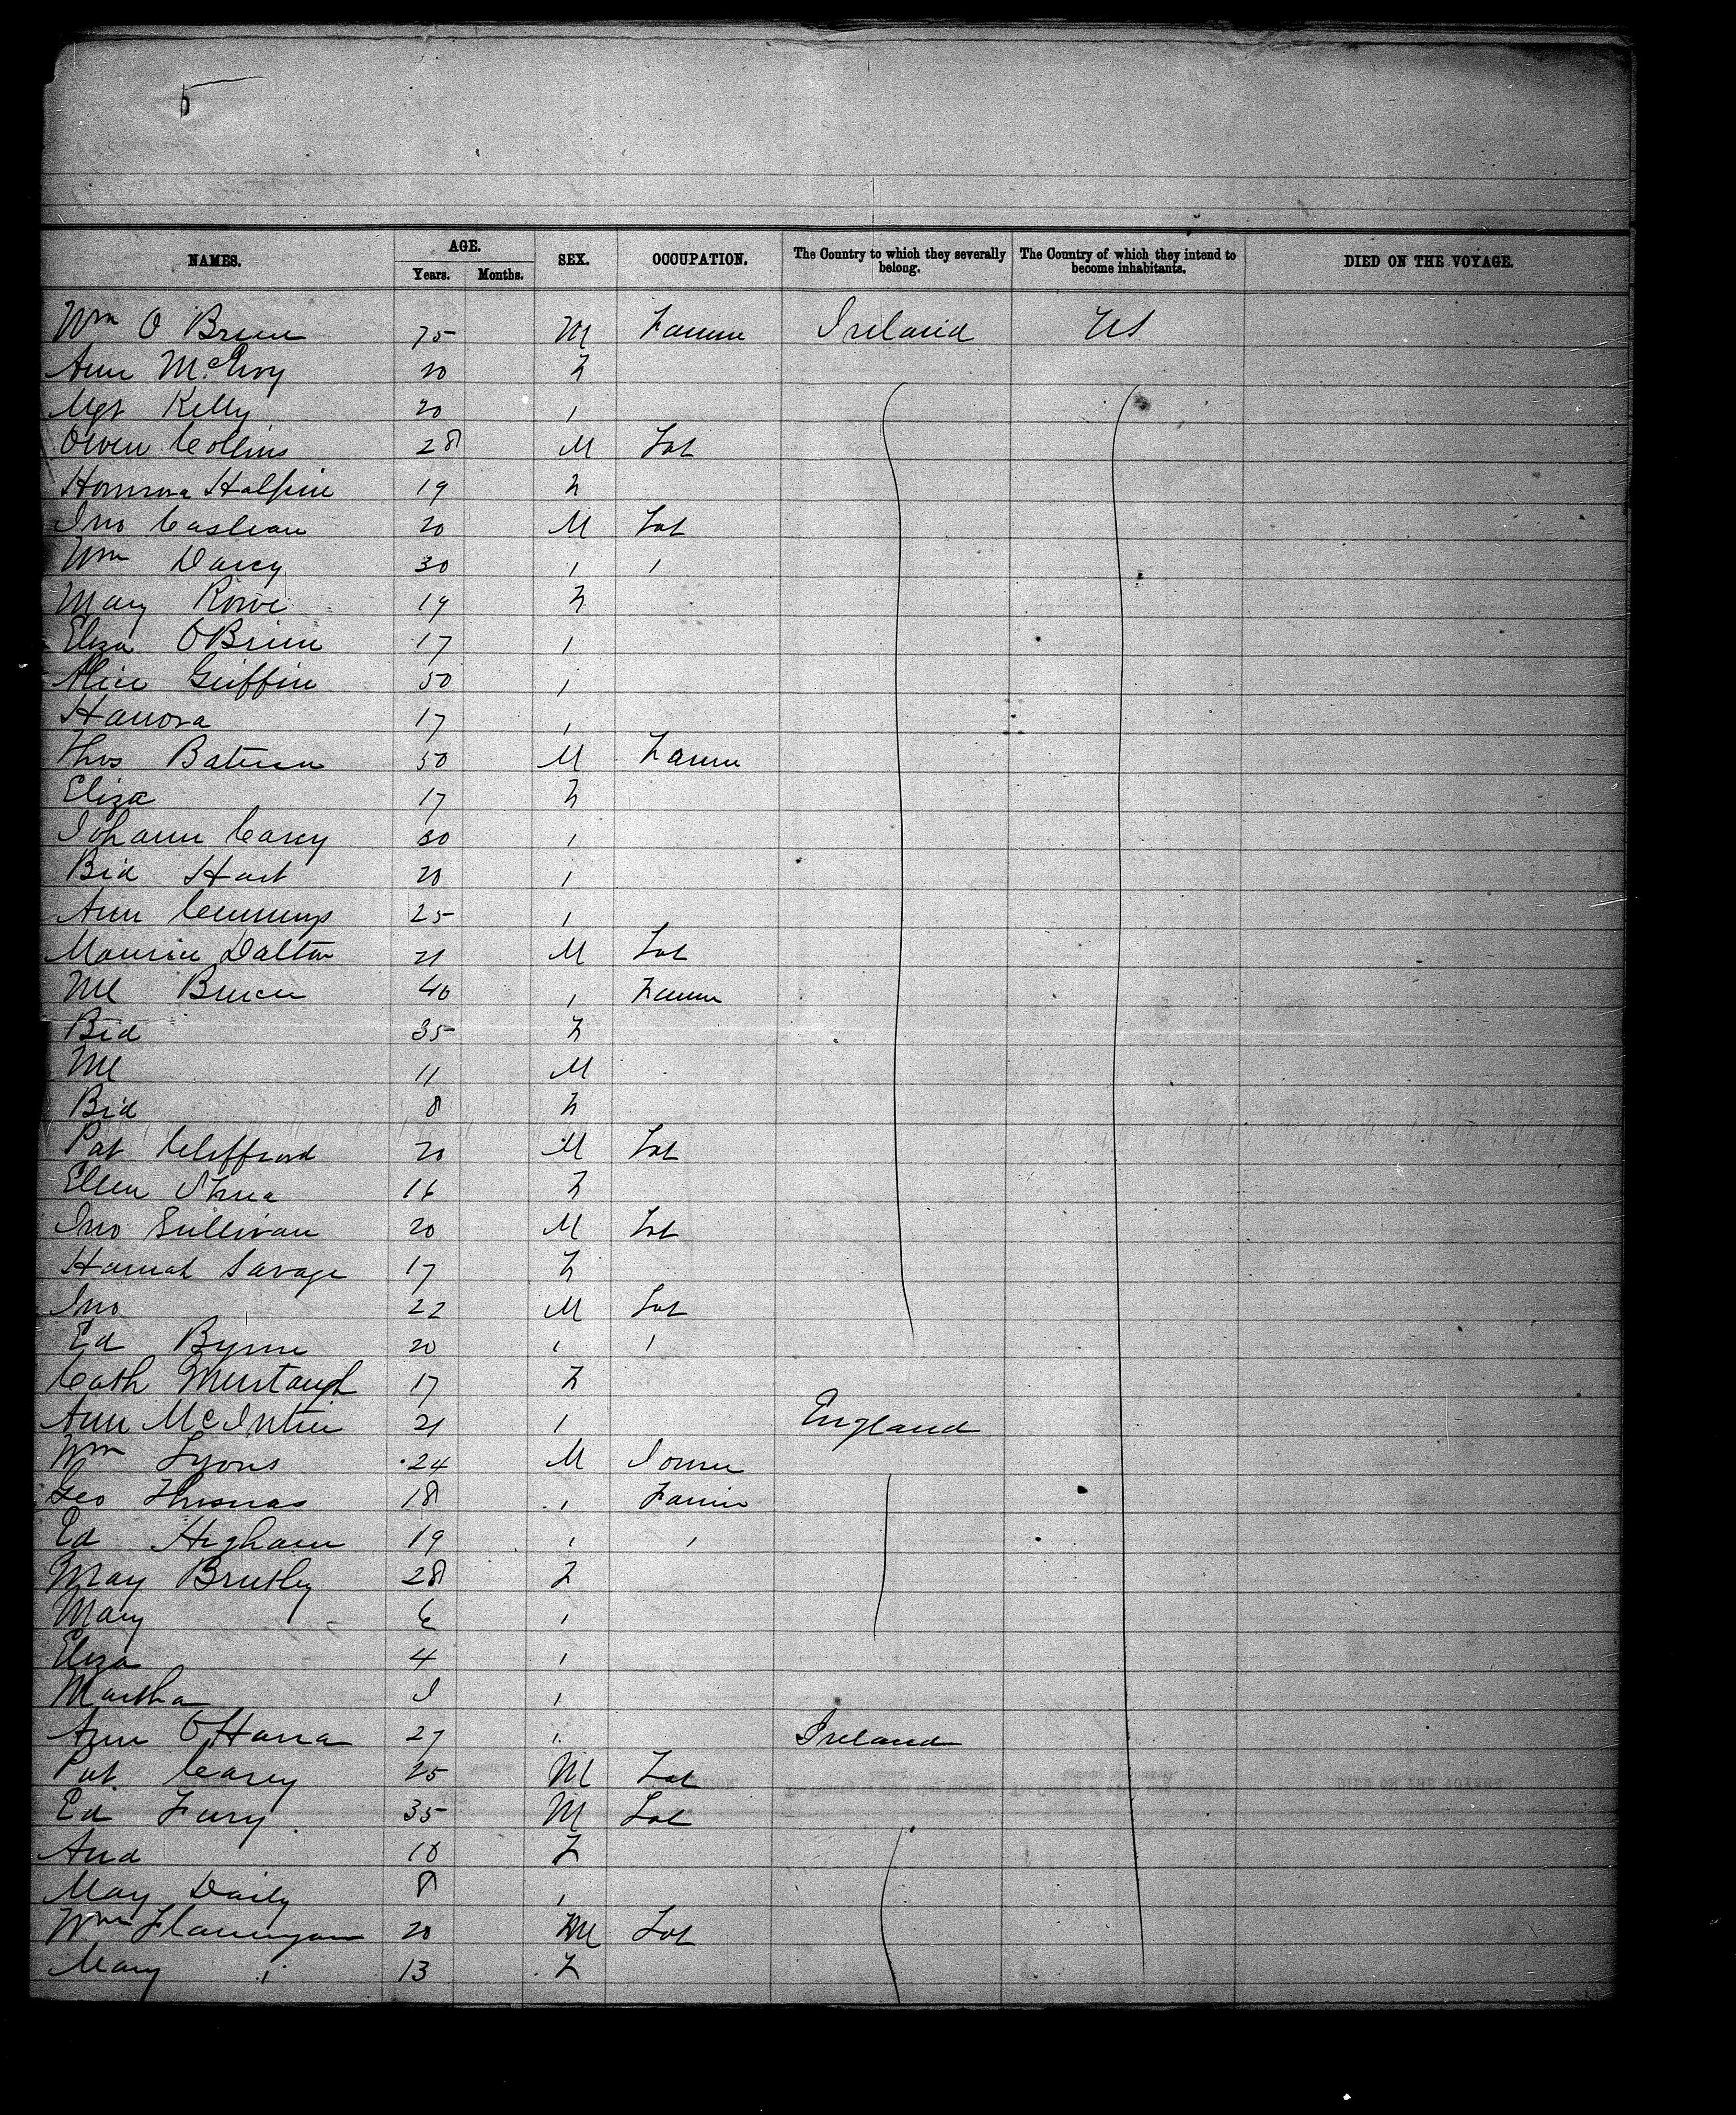 NAMES. AGE. Years. Months. SEX. OCCUPATION. The Country to which they severally belong. The Country of which they intend to become inhabitants. DIED ON THE VOYAGE.
Wm O Brien 75 M Farmer Ireland US
Ann McElroy 20 F
Mgt Kelly 20 "
Owen Collins 28 M Lab
Honnora Halpin 19 F
Jno Caslean 20 M Lab
Wm Darcy 30 " "
Mary Rowe 19 F
Eliza OBrien 17 "
Alice Griffin 50 "
Hanora 17 "
Thos Bateson 50 M Farmer
Eliza 17 F
Johann Carey 30 "
Bid Hart 20 "
Ann Cummings 25 "
Maurice Dalton 21 M Lab
Ml 40 " Farmer
Bid 35 F
Ml 11 M
Bid 8 F
Pat Clifford 20 M Lab
Ellen Shea 16 F
Jno Sullivan 20 M Lab
Hannah Savage 17 F
Jno 22 M Lab
Ed Byrne 20 " "
Cath Murtaugh 17 F
Ann McIntire 21 " England
Wm Lyons 24 M Joiner
Geo Thomas 18 " Farmer
Ed Higham 19 " "
May 28 F
Mary 6 "
Eliza 4 "
Martha "
Ann OHara 27 " Ireland
Pat Carey 25 M Lab
Ed Fury 35 M Lab
And 18 F
May Daily 8 "
Wm Flannigan 20 M Lab
Mary " 13 F